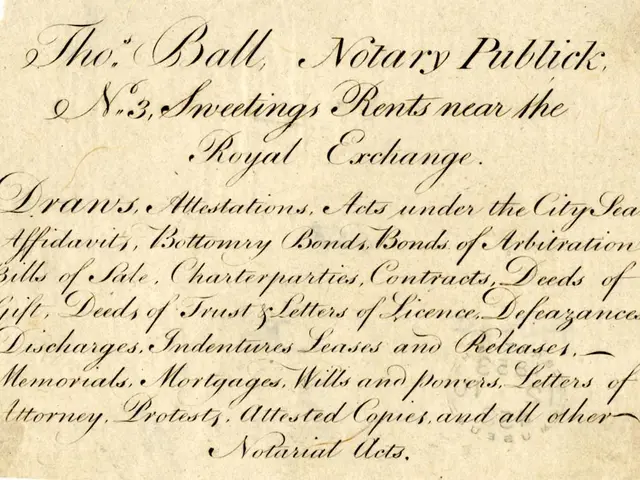 Tho.s Ball, Notary Publick,
No. 3, Sweetings Rents near the
Royal Exchange.
Draws, Attestations, Acts under the City Sea
Affidavits, Bottomry Bonds, Bonds of Arbitration
Bills of Sale, Charterparties, Contracts, Deeds of
Gift, Deeds of Trust & Letters of Licence, Defeazances
Discharges, Indentures Leases and Releases, —
Memorials, Mortgages, Wills and powers, Letters of
Attorney, Protests, Attested Copies, and all other —
Notarial Acts.